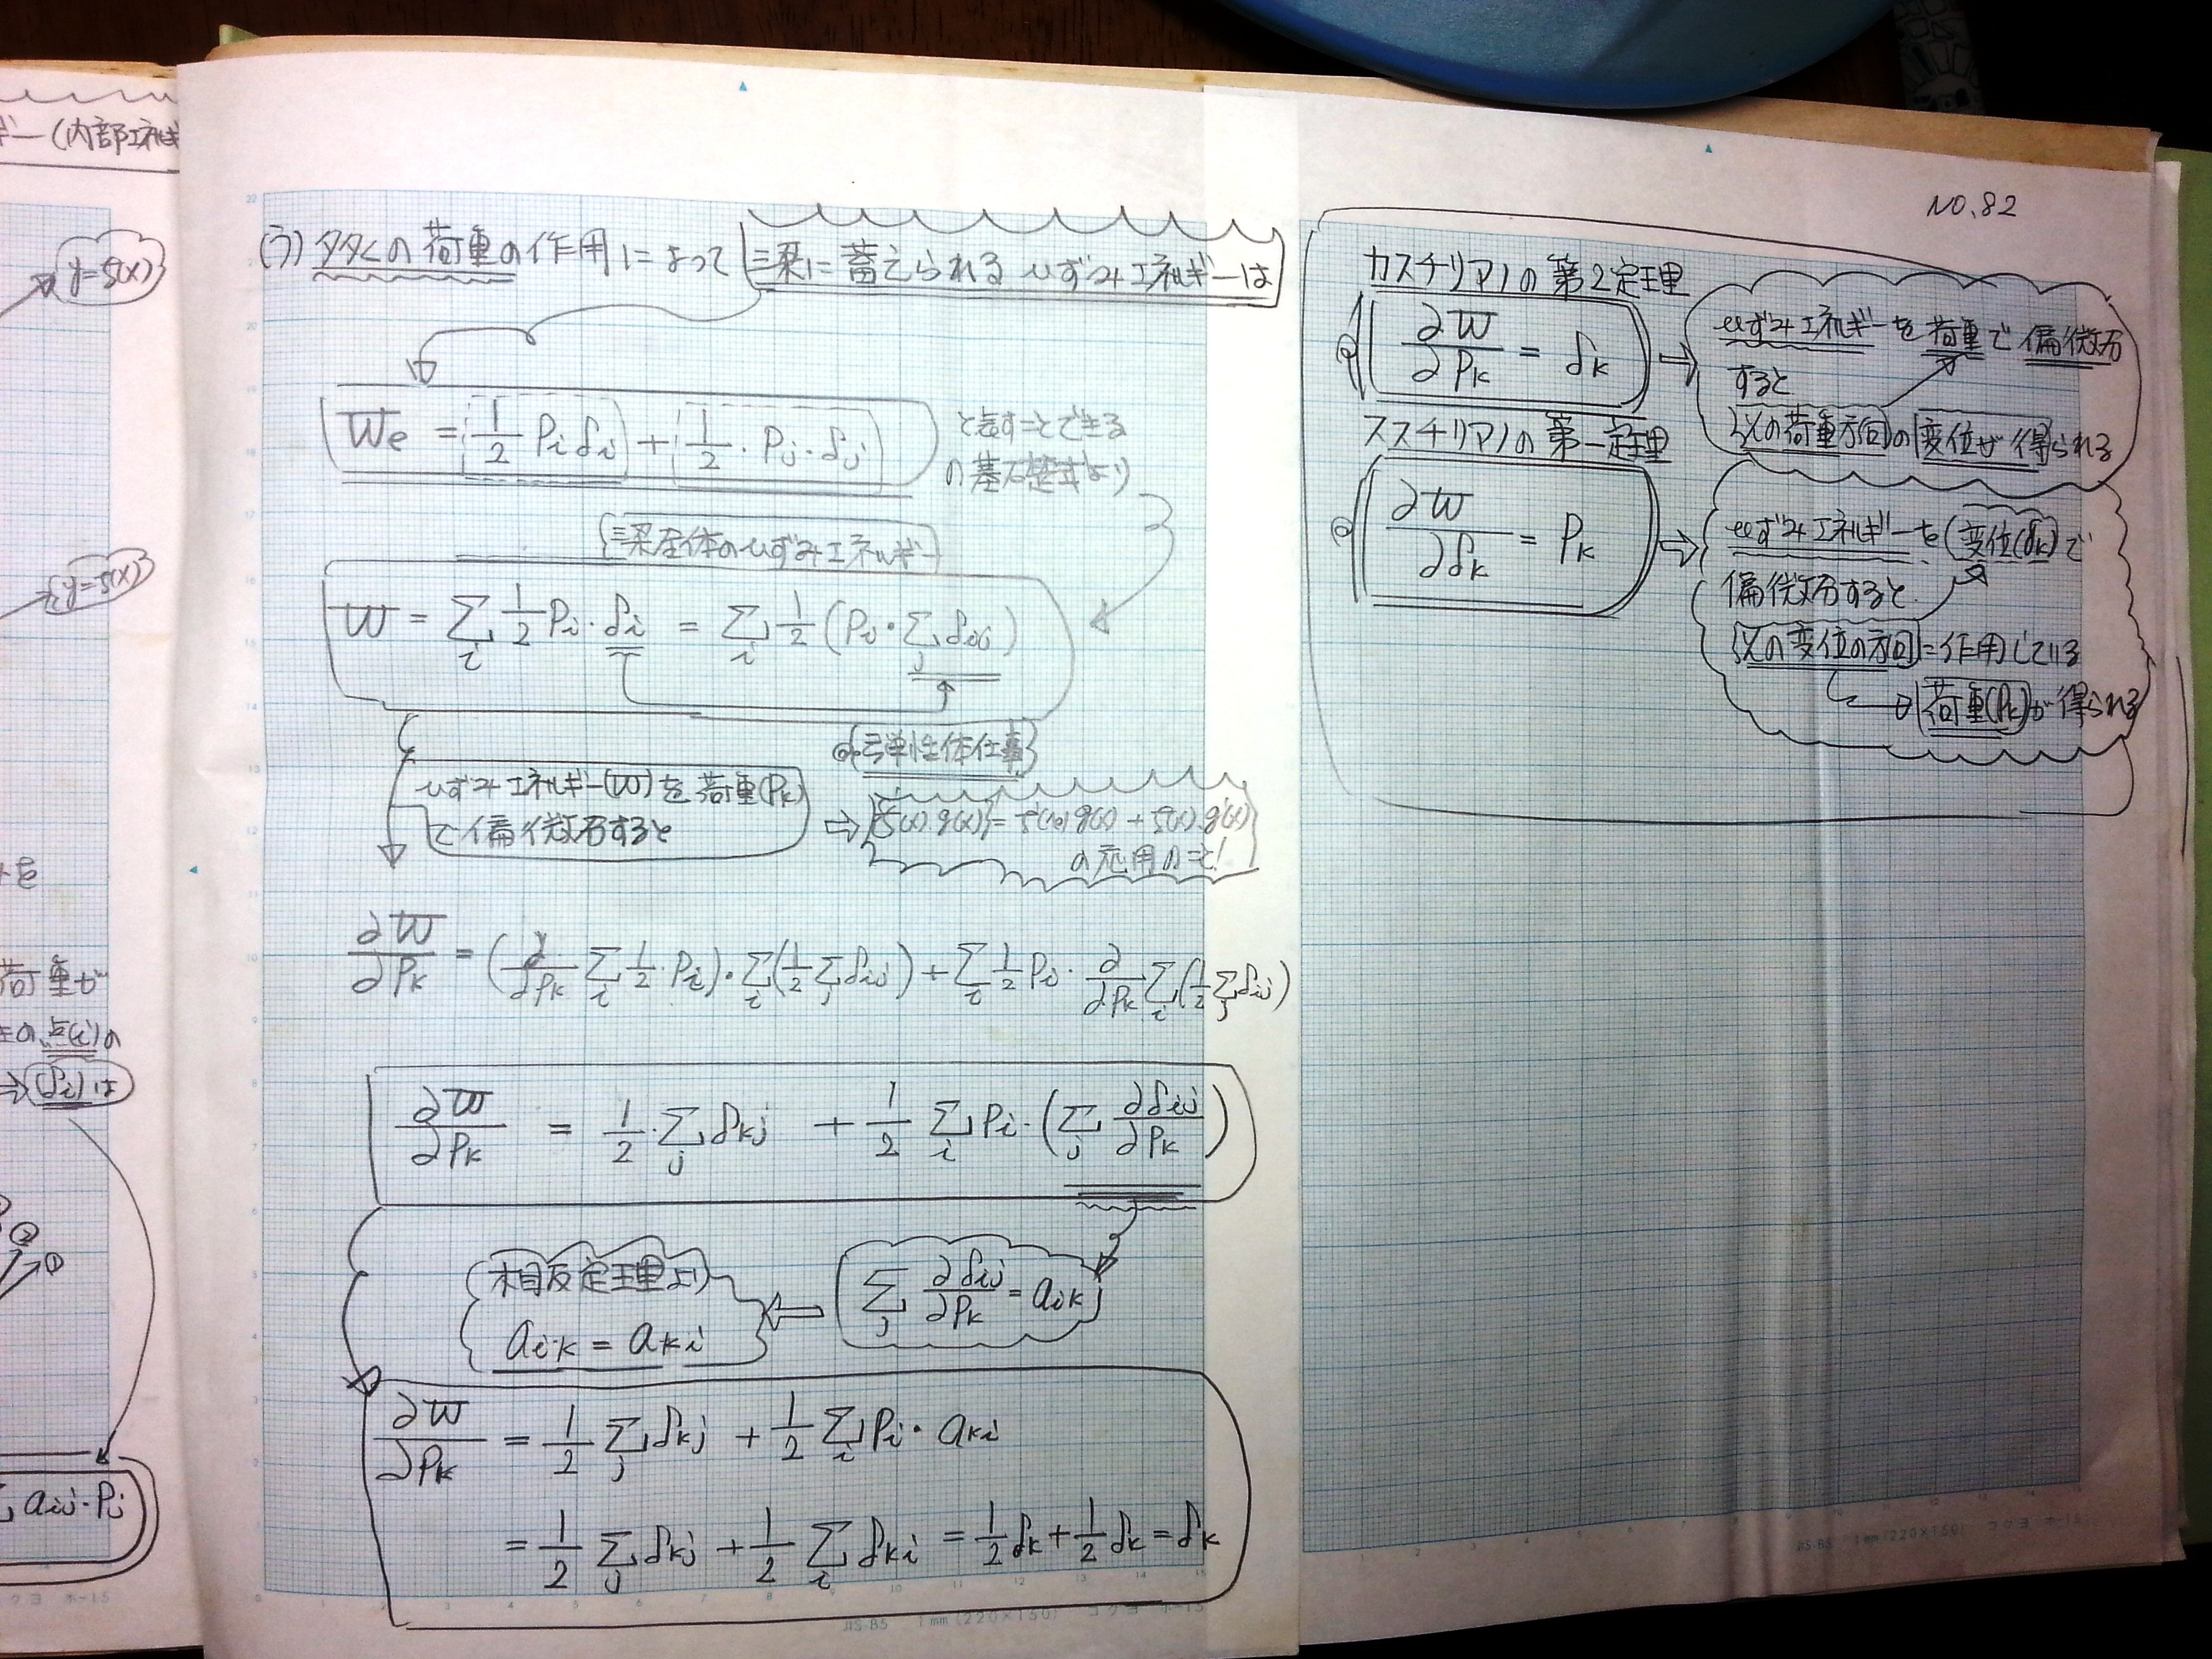 ギー(内部エネルギ
y=f(x)
y=f(x)
荷重が
点(i)の
(δi)は
②
①
aij・Pj
(う)多くの荷重の作用によって梁に蓄えられるひずみエネルギーは
We = 1/2 Pi δi + 1/2・Pj・δj と表すことできる
の基礎式より
梁全体のひずみエネルギー
W = Σi 1/2 Pi・δi = Σi 1/2 (Pi・Σj δij)
弾性体仕事
ひずみエネルギー(W)を荷重(Pk)
で偏微分すると
⇨ {f(x)・g(x)}' = f'(x)g(x) + f(x)・g'(x)
の応用のこと!
∂W/∂Pk = (∂/∂Pk Σi 1/2・Pi)・Σi(1/2 Σj δij) + Σi 1/2 Pi・∂/∂Pk Σi(1/2 Σj δij)
∂W/∂Pk = 1/2・Σj δkj + 1/2 Σi Pi・(Σj ∂δij/∂Pk)
Σj ∂δij/∂Pk = aik
相反定理より
aik = aki
∂W/∂Pk = 1/2 Σj δkj + 1/2 Σi Pi・aki
= 1/2 Σj δkj + 1/2 Σi δki = 1/2 δk + 1/2 δk = δk
JIS-B5 1mm(220×150) コクヨ ホ-15
NO.82
カスチリアノの第2定理
∂W/∂Pk = δk
ひずみエネルギーを荷重で偏微分
すると
その荷重方向の変位が得られる
ススチリアノの第一定理
∂W/∂δk = Pk
ひずみエネルギーを(変位(δk)で
偏微分すると
その変位の方向に作用している
荷重(Pk)が得られる
JIS-B5 1mm(220×150) コクヨ ホ-15